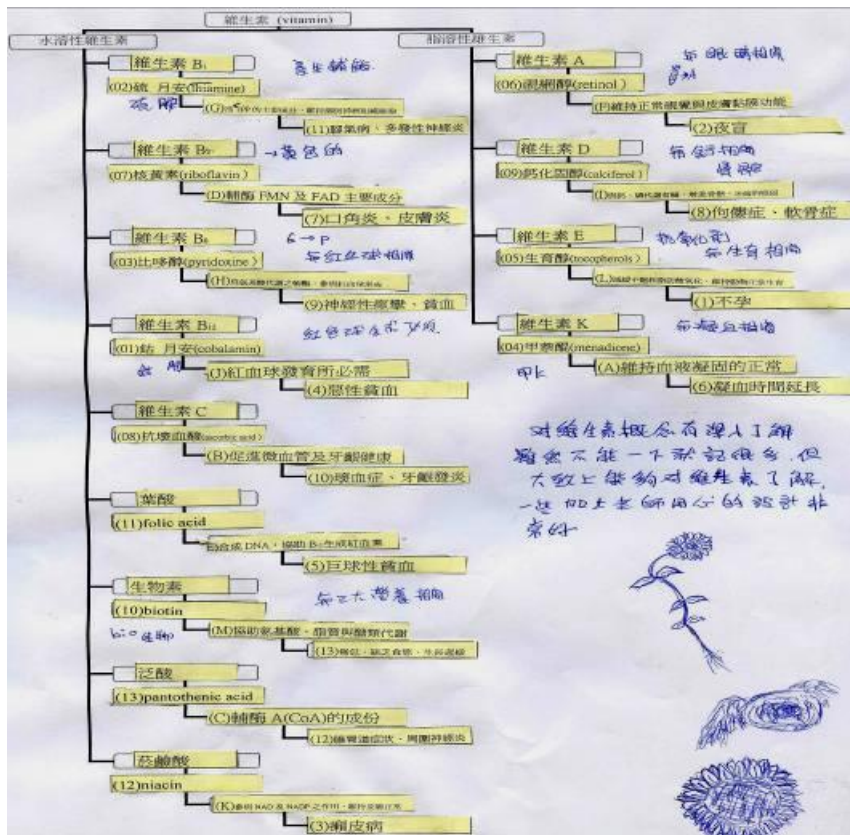 維生素 (vitamin)
水溶性維生素
維生素 B₁
產生輔酶
(02)硫 月安(thiamine)
硫 胺
(11)腳氣病、多發性神經炎
維生素 B₂
→黃色的
(07)核黃素(riboflavin)
(D)輔酶 FMN 及 FAD 主要成分
(7)口角炎、皮膚炎
維生素 B₆
6→P
與紅血球相關
(03)比哆醇(pyridoxine)
(9)神經性痙攣、貧血
維生素 B₁₂
(01)鈷 月安(cobalamin)
鈷 胺
(J)紅血球發育所必需
(4)惡性貧血
維生素 C
(08)抗壞血酸(ascorbic acid)
(B)促進微血管及牙齦健康
(10)壞血症、牙齦發炎
葉酸
(11)folic acid
E)合成 DNA，協助 B₁₂生成紅血素
(5)巨球性貧血
生物素
與三大營養相關
(10)biotin
bio生物
(M)協助氨基酸、脂質與醣類代謝
泛酸
(13)pantothenic acid
(C)輔酶 A(CoA)的成份
(12)腸胃道症狀、周圍神經炎
菸鹼酸
(12)niacin
(3)癩皮病
脂溶性維生素
維生素 A
與眼睛相關
(06)視網醇(retinol)
(F)維持正常視覺與皮膚黏膜功能
(2)夜盲
維生素 D
(09)鈣化固醇(calciferol)
(8)佝僂症、軟骨症
維生素 E
抗氧化劑
與生育相關
(05)生育醇(tocopherols)
(1)不孕
維生素 K
與凝血相關
(04)甲萘醌(menadione)
甲K
(A)維持血液凝固的正常
(6)凝血時間延長
对維生素概念有深入了解
雖然不能一下就記很多,但
大致上能夠对維生素了解,
加上老師用心的設計非
常好